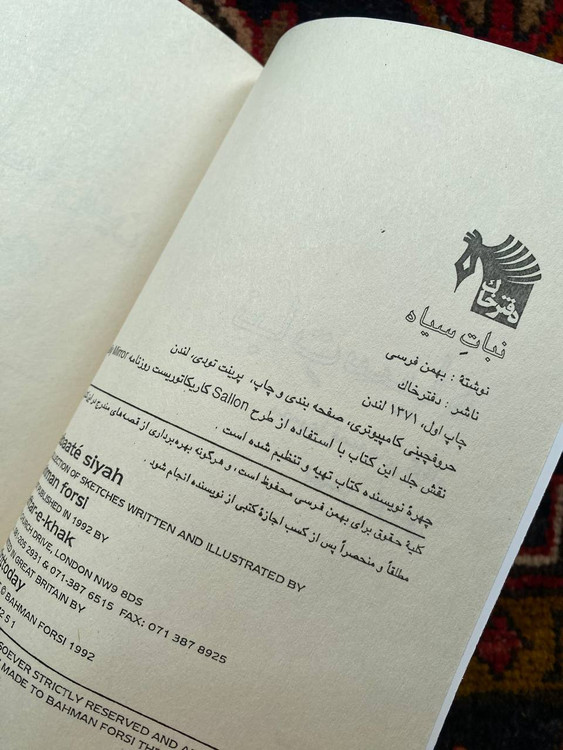 دفتر خاک
نباتِ سیاه
نوشتهٔ : بهمن فرسی
ناشر : دفترخاک
چاپ اول، ۱۳۷۱ لندن
حروفچینی کامپیوتری، صفحه بندی و چاپ، پرینت تودی، لندن
نقش جلد این کتاب با استفاده از طرح Sallon کاریکاتوریست روزنامه Mirror
چهرهٔ نویسنده کتاب تهیه و تنظیم شده است .
کلیهٔ حقوق برای بهمن فرسی محفوظ است، و هرگونه بهره برداری از قصه‌های مندرج در این
مطلقاً و منحصراً پس از کسب اجازهٔ کتبی از نویسنده انجام شود .
baaté siyah
ECTION OF SKETCHES WRITTEN AND ILLUSTRATED BY
man forsi
PUBLISHED IN 1992 BY
tar-e-khak
CHURCH DRIVE, LONDON NW9 8DS
205 2931 & 071-387 6515 FAX: 071 387 8925
ED IN GREAT BRITAIN BY
ttoday
© BAHMAN FORSI 1992
2 5 1
SOEVER STRICTLY RESERVED AND
MADE TO BAHMAN FORSI